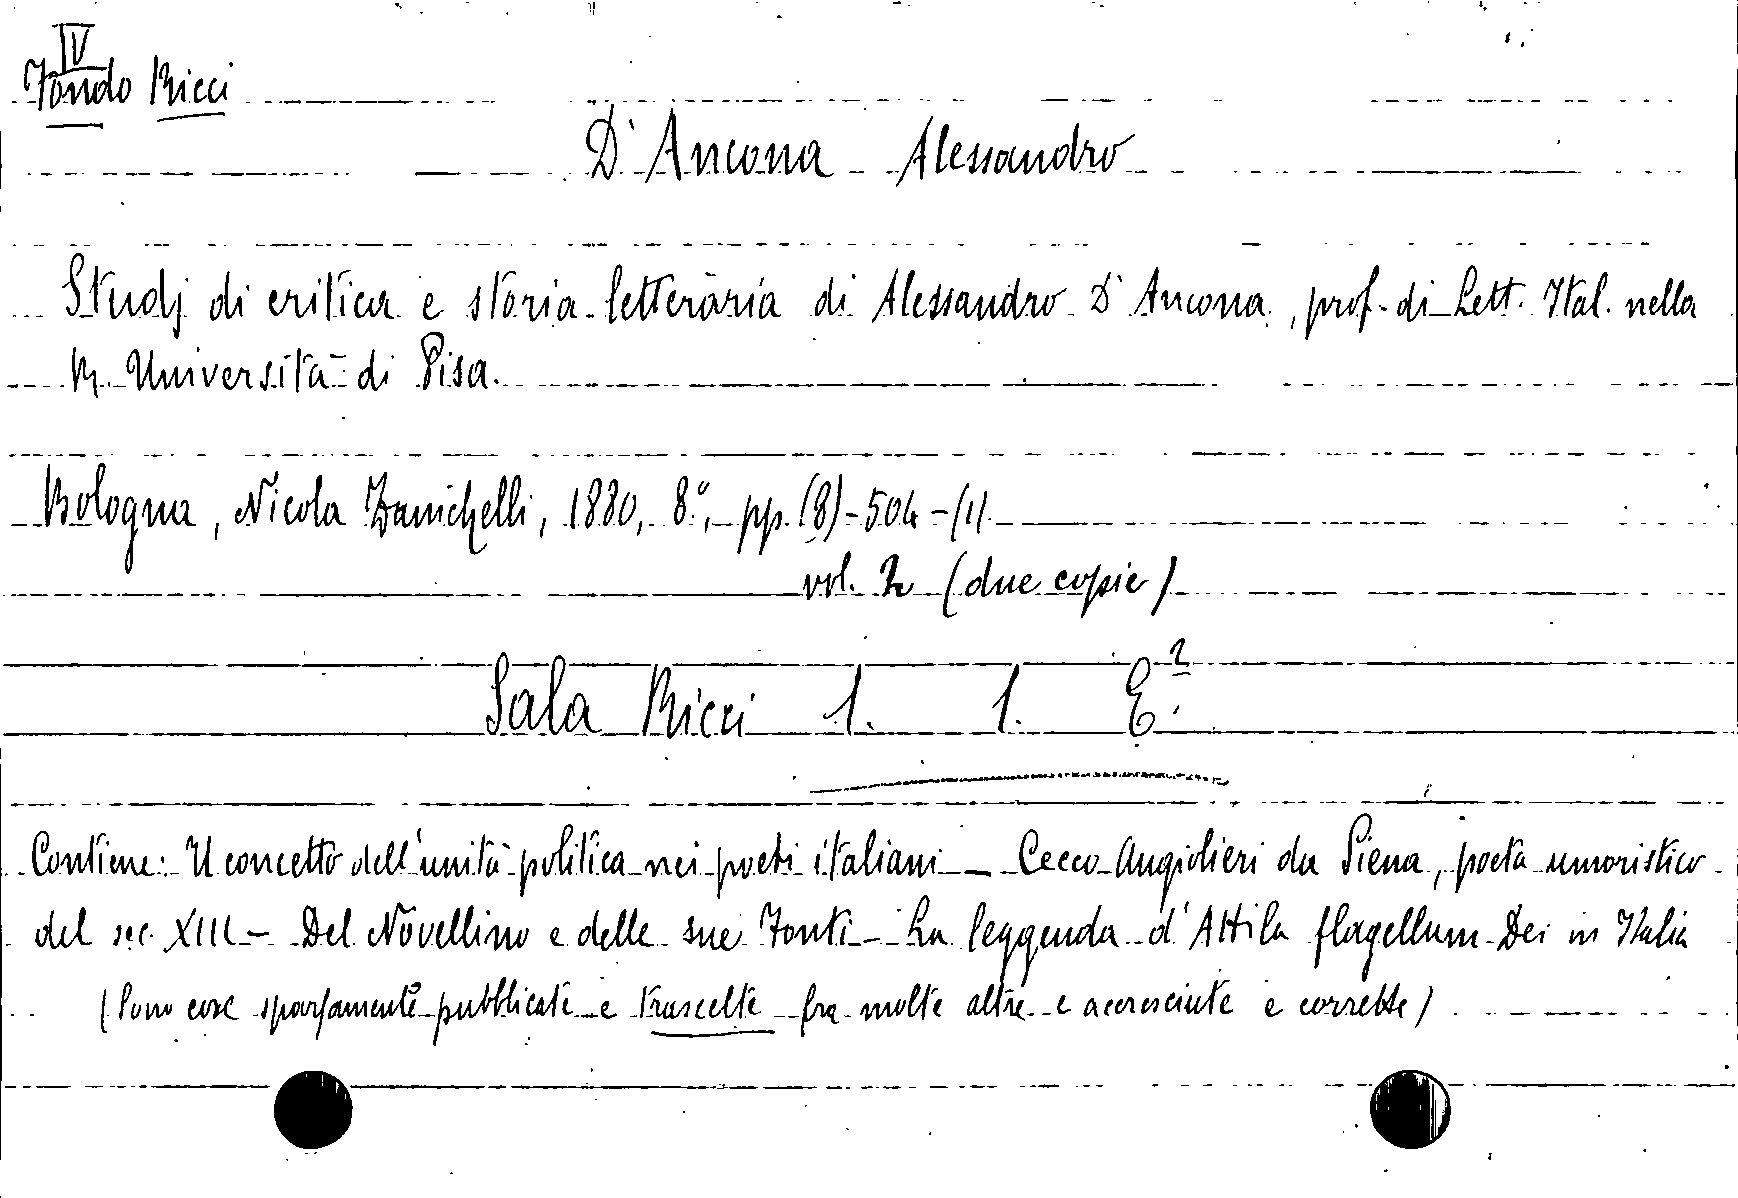 IV
Fondo Ricci
D'Ancona Alessandro
Studj di critica e storia letteraria di Alessandro D'Ancona, prof. di Lett. Ital. nella
R. Università di Pisa.
Bologna, Nicola Zanichelli, 1880, 8°, pp. (8)-504-(1)
vol. 2 (due copie)
Sala Ricci 1. 1. E.2
Contiene: Il concetto dell'unità politica nei poeti italiani - Cecco Angiolieri da Siena, poeta umoristico
del sec. XIII - Del Novellino e delle sue Fonti - La leggenda d'Attila flagellum Dei in Italia
(Sono cose sparsamente pubblicate e trascelte fra molte altre e accresciute e corrette)